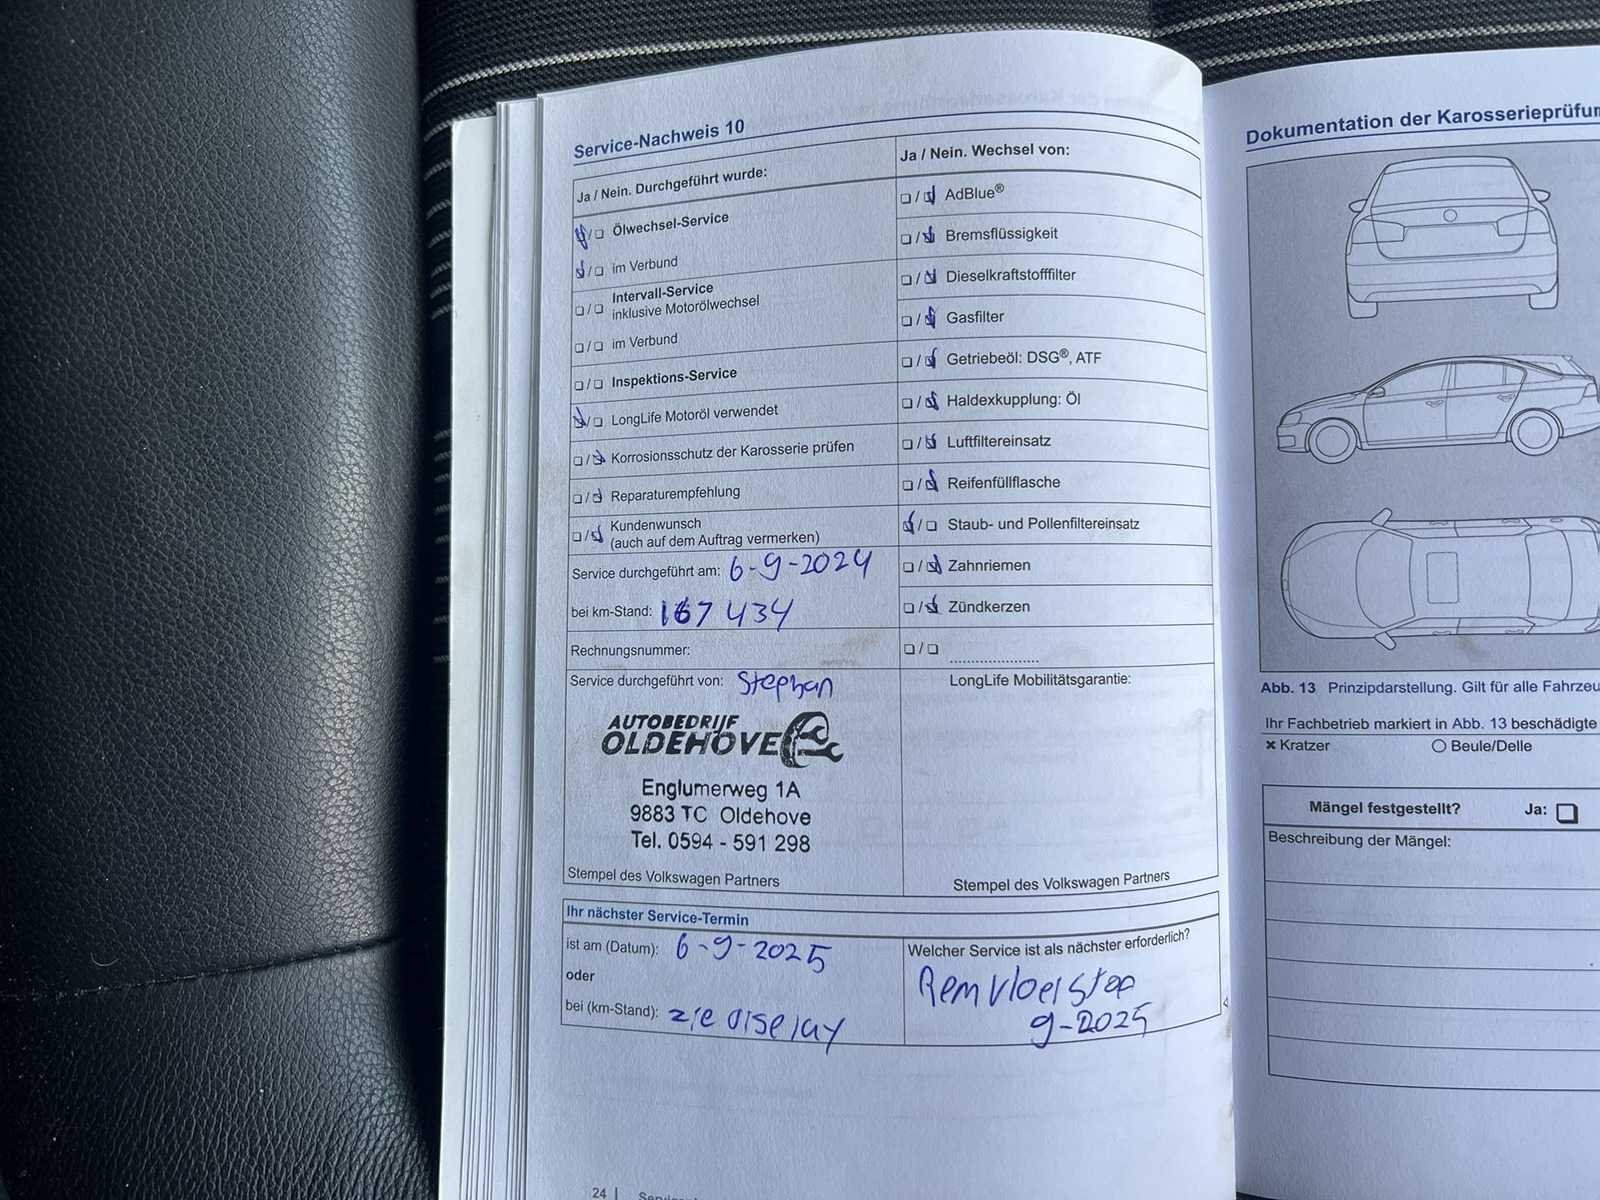 Service-Nachweis 10
Ja / Nein. Durchgeführt wurde:
Ölwechsel-Service
im Verbund
Intervall-Service
inklusive Motorölwechsel
im Verbund
Inspektions-Service
LongLife Motoröl verwendet
Korrosionsschutz der Karosserie prüfen
Reparaturempfehlung
Kundenwunsch
(auch auf dem Auftrag vermerken)
Service durchgeführt am: 6-9-2024
bei km-Stand: 167 434
Rechnungsnummer:
Service durchgeführt von: Stephan
AUTOBEDRIJF
OLDEHOVE
Englumerweg 1A
9883 TC Oldehove
Tel. 0594 - 591 298
Stempel des Volkswagen Partners
Ja / Nein. Wechsel von:
AdBlue®
Bremsflüssigkeit
Dieselkraftstofffilter
Gasfilter
Getriebeöl: DSG®, ATF
Haldexkupplung: Öl
Luftfiltereinsatz
Reifenfüllflasche
Staub- und Pollenfiltereinsatz
Zahnriemen
Zündkerzen
LongLife Mobilitätsgarantie:
Stempel des Volkswagen Partners
Ihr nächster Service-Termin
ist am (Datum): 6-9-2025
oder
bei (km-Stand): zie display
Welcher Service ist als nächster erforderlich?
Remvloeistof
9-2025
24
Dokumentation der
Abb. 13 Prinzipdarstellung. Gilt für alle
Ihr Fachbetrieb markiert in Abb. 13 beschädigte
Kratzer
Beule/Delle
Mängel festgestellt? Ja:
Beschreibung der Mängel: